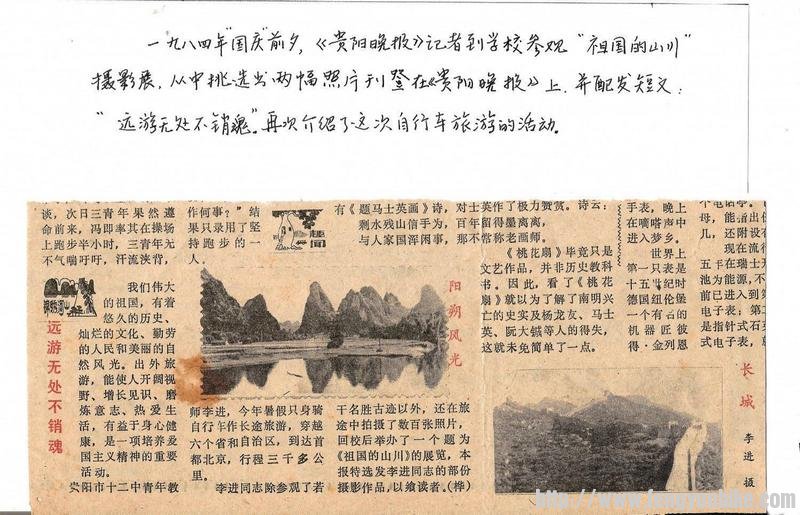 一九八四年"国庆"前夕,《贵阳晚报》记者到学校参观"祖国的山川"
摄影展,从中挑选出两幅照片刊登在《贵阳晚报》上.并配发短文:
"远游无处不销魂"。再次介绍了这次自行车旅游的活动。
谈,次日三青年果然遵
命前来,冯即率其在操场
上跑步半小时,三青年无
不气喘吁吁,汗流浃背,
作何事?"结
果只录用了坚
持跑步的一
人。
趣闻
有《题马士英画》诗,
剩水残山信手为,
与人家国浑闲事,
对士英作了极力赞赏。诗云:
百年留得墨离离,
那不常称老画师。
《桃花扇》毕竟只是
文艺作品,并非历史教科
书。因此,看了《桃花
扇》就以为了解了南明兴
亡的史实及杨龙友、马士
英、阮大铖等人的得失,
这就未免简单了一点。
手表,晚上
在嘀嗒声中
进入梦乡。
世界上
第一只表是
十五世纪时
德国纽伦堡
一个有名的
机器匠彼
得·金列恩
远游无处不销魂
我们伟大
的祖国,有着
悠久的历史、
灿烂的文化、勤劳
的人民和美丽的自
然风光。出外旅
游,能使人开阔视
野、增长见识、磨
炼意志、热爱生
活,有益于身心健
康,是一项培养爱
国主义精神的重要
活动。
贵阳市十二中青年教
师李进,今年暑假只身骑
自行车作长途旅游,穿越
六个省和自治区,到达首
都北京,行程三千多公
里。
李进同志除参观了若
干名胜古迹以外,还在旅
途中拍摄了数百张照片,
回校后举办了一个题为
《祖国的山川》的展览,本
报特选发李进同志的部份
摄影作品,以飨读者。(桦)
阳朔风光
长城
李进 摄